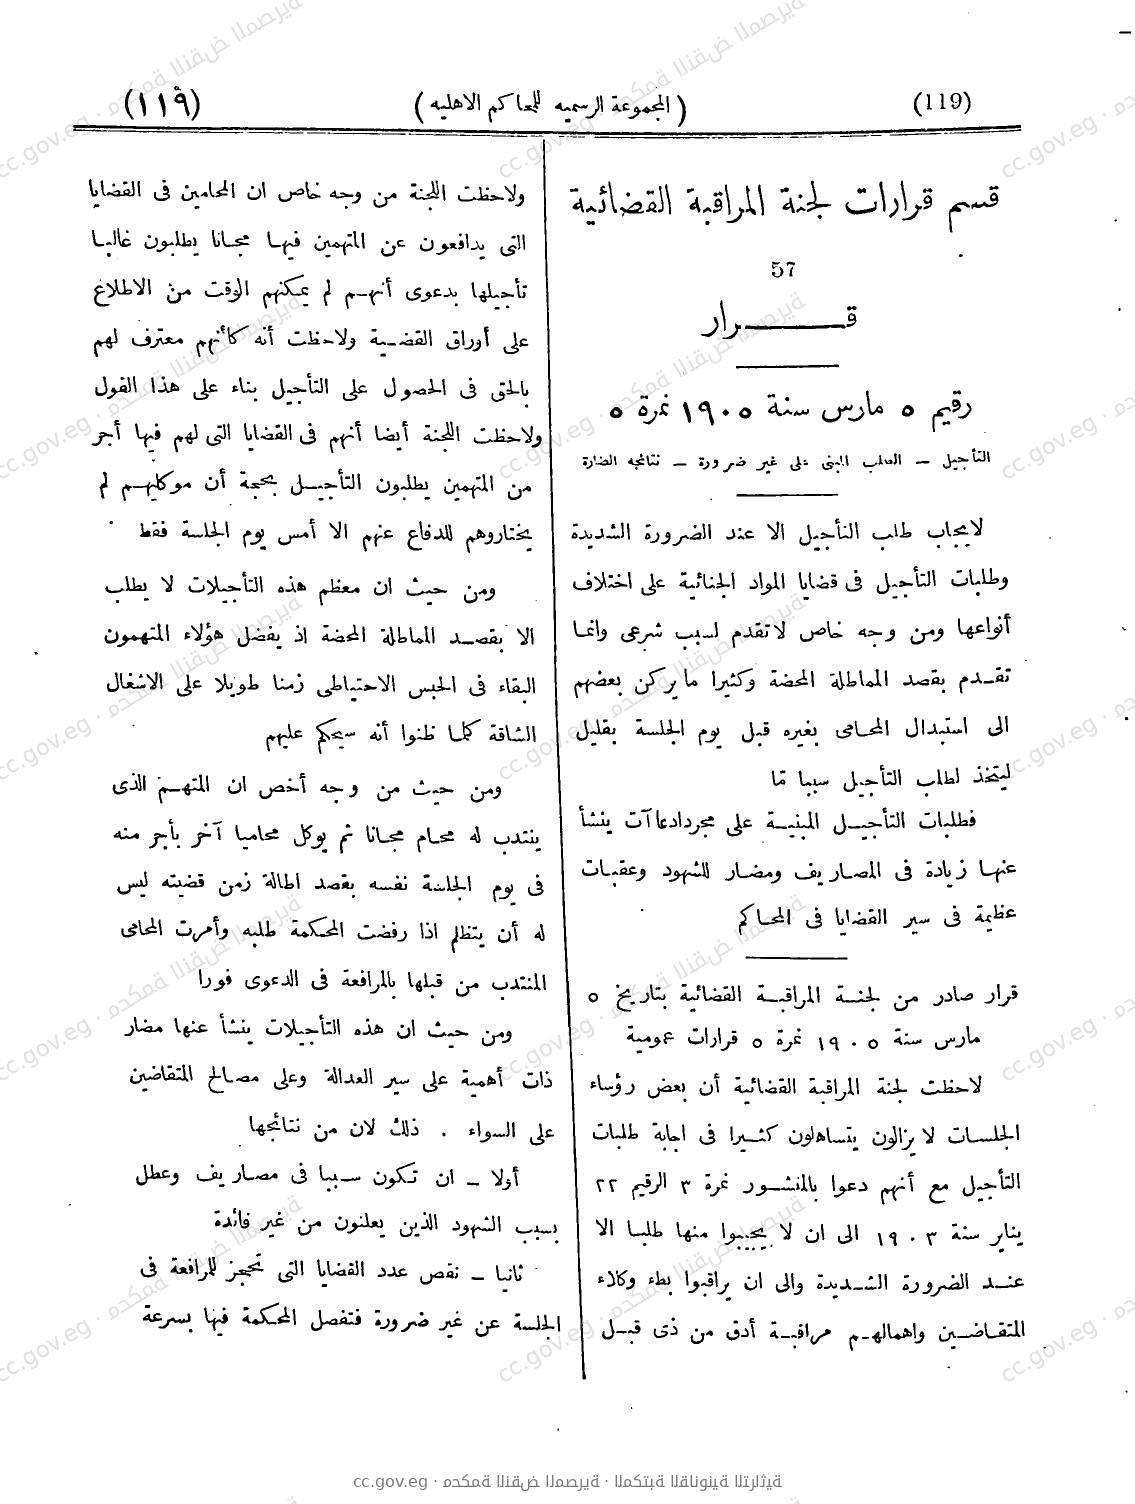 (119)
(المجموعة الرسميه للمحاكم الاهليه)
(١١٩)
قسم قرارات لجنة المراقبة القضائية
57
قـــرار
رقيم ٥ مارس سنة ١٩٠٥ نمرة ٥
التأجيل – الطلب المبنى على غير ضرورة – نتائجه الضارة
لايجاب طلب التأجيل الا عند الضرورة الشديدة
وطلبات التأجيل فى قضايا المواد الجنائية على اختلاف
أنواعها ومن وجه خاص لاتقدم لسبب شرعى وانما
تقـدم بقصد المماطلة المحضة وكثيرا مايركن بعضهم
الى استبدال المحامى بغيره قبل يوم الجلسة بقليل
ليتخذ لطلب التأجيل سببا مّا
فطلبات التأجيـل المبنيـة على مجردادعاآت ينشأ
عنهـا زيادة فى المصاريف ومضار للشهود وعقبـات
عظيمة فى سير القضايا فى المحـاكم
قرار صادر من لجنـة المراقبـة القضائية بتاريخ ٥
مارس سنة ١٩٠٥ نمرة ٥ قرارات عمومية
لاحظت لجنة المراقبة القضائية أن بعض رؤساء
الجلسـات لايزالون يتساهلون كثـيرا فى اجابة طلبات
التأجيل مع أنهم دعوا بالمنشـور نمرة ٣ الرقيم ٢٢
يناير سنة ١٩٠٣ الى ان لا يجيبوا منها طلبـا الا
عنـد الضرورة الشـديدة والى ان يراقبوا بطء وكلاء
المتقـاضـين واهمالهـم مراقبـة أدق من ذى قبـل
ولاحظت اللجنة من وجه خاص ان المحامين فى القضايا
التى يدافعون عن المتهمين فيهـا مجـانا يطلبون غالبـا
تأجيلها بدعوى أنهـم لم يمكنهم الوقت من الاطلاع
على أوراق القضـية ولاحظت أنه كأنهم معترف لهم
بالحق فى الحصول على التأجيل بناء على هذا القول
ولاحظت اللجنة أيضا أنهم فى القضايا التى لهم فيها أجر
من المتهمين يطلبون التأجيـل بحجة أن موكليهـم لم
يختاروهم للدفاع عنهم الا أمس يوم الجلسة فقط
ومن حيث ان معظم هذه التأجيلات لا يطلب
الا بقصـد المماطلة المحضة اذ يفضل هؤلاء المتهمون
البقاء فى الحبس الاحتياطى زمنا طويلا على الاشغال
الشاقة كلمـا ظنوا أنه سيحكم عليهم
ومن حيث من وجه أخص ان المتهـم الذى
ينتدب له محـام مجـانا ثم يوكل محاميا آخر بأجر منه
فى يوم الجلسة نفسه بقصد اطالة زمن قضيته ليس
له أن يتظلم اذا رفضت المحكمة طلبه وأمرت المحامى
المنتدب من قبلها بالمرافعة فى الدعوى فورا
ومن حيث ان هذه التأجيلات ينشأ عنها مضار
ذات أهمية على سير العدالة وعلى مصـالح المتقاضين
على السواء . ذلك لان من نتائجها
أولا – ان تـكون سـببا فى مصـاريف وعطل
بسبب الشهود الذين يعلنون من غير فائدة
ثانيا – نقص عدد القضايا التى تحجز للمرافعة فى
الجلسة عن غير ضرورة فتفصل المحكمة فيها بسرعة
cc.gov.eg · محكمة النقض المصرية · المكتبة القانونية التراثية